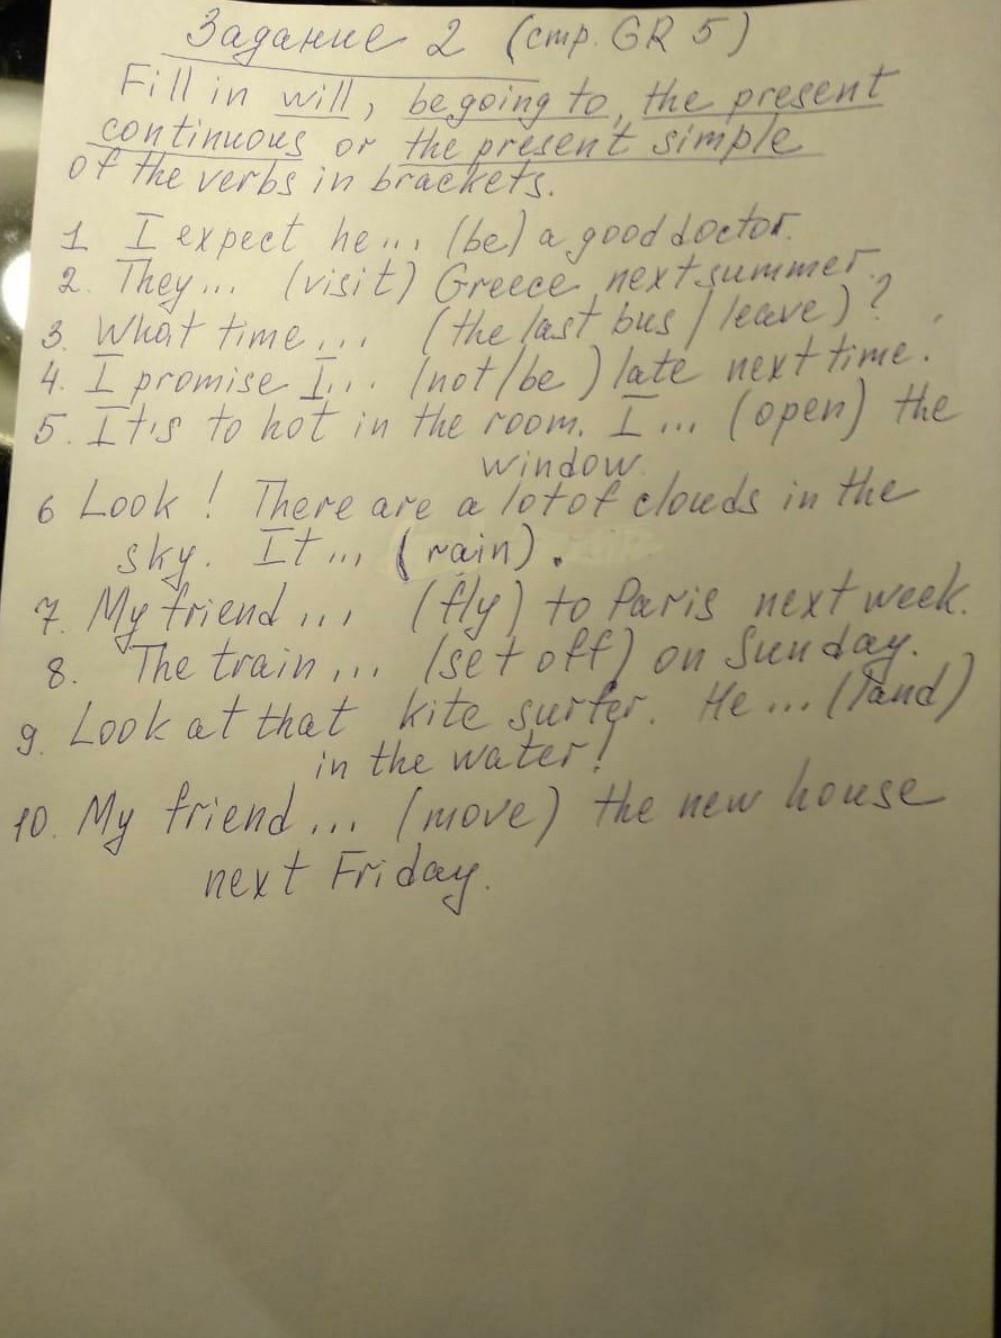 Задание 2 (стр. GR 5)
Fill in will, be going to, the present
continuous or the present simple
of the verbs in brackets.
1 I expect he... (be) a good doctor.
2. They... (visit) Greece next summer.
3. What time... (the last bus / leave)?
4. I promise I... (not/be) late next time.
5. It's to hot in the room. I... (open) the
window.
6 Look! There are a lot of clouds in the
sky. It... (rain).
7. My friend... (fly) to Paris next week.
8. The train... (set off) on Sunday.
9. Look at that kite surfer. He... (land)
in the water!
10. My friend... (move) the new house
next Friday.